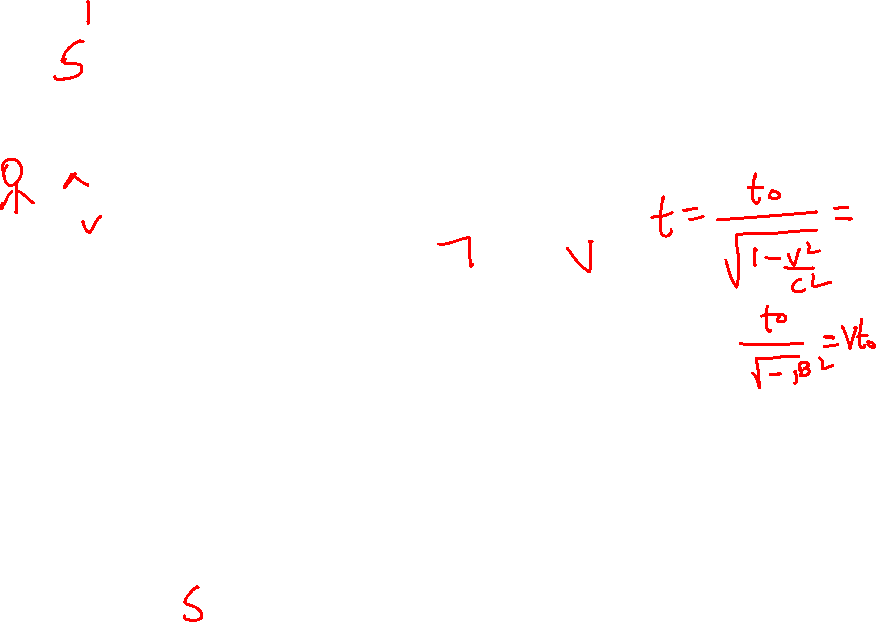 S'
v
v
t = t₀/√(1 - v²/c²) =
t₀/√(-β²) = Vt₀
S